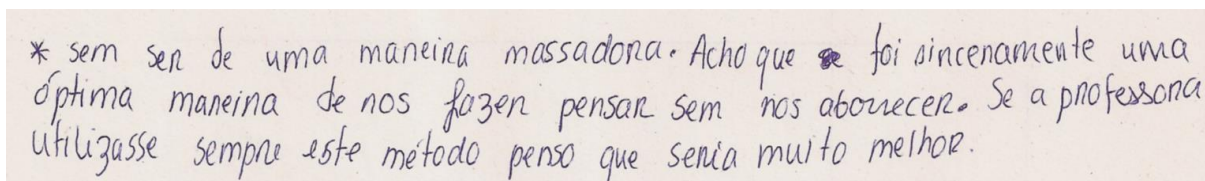 * sem ser de uma maneira massadora. Acho que foi sinceramente uma
óptima maneira de nos fazer pensar sem nos aborrecer. Se a professora
utilizasse sempre este método penso que seria muito melhor.